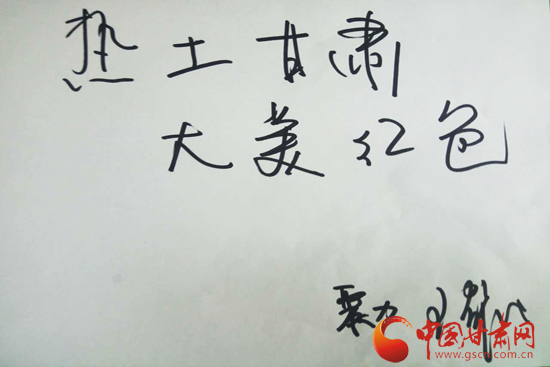 热土甘肃
大美红色
中国甘肃网
www.gscn.com.cn